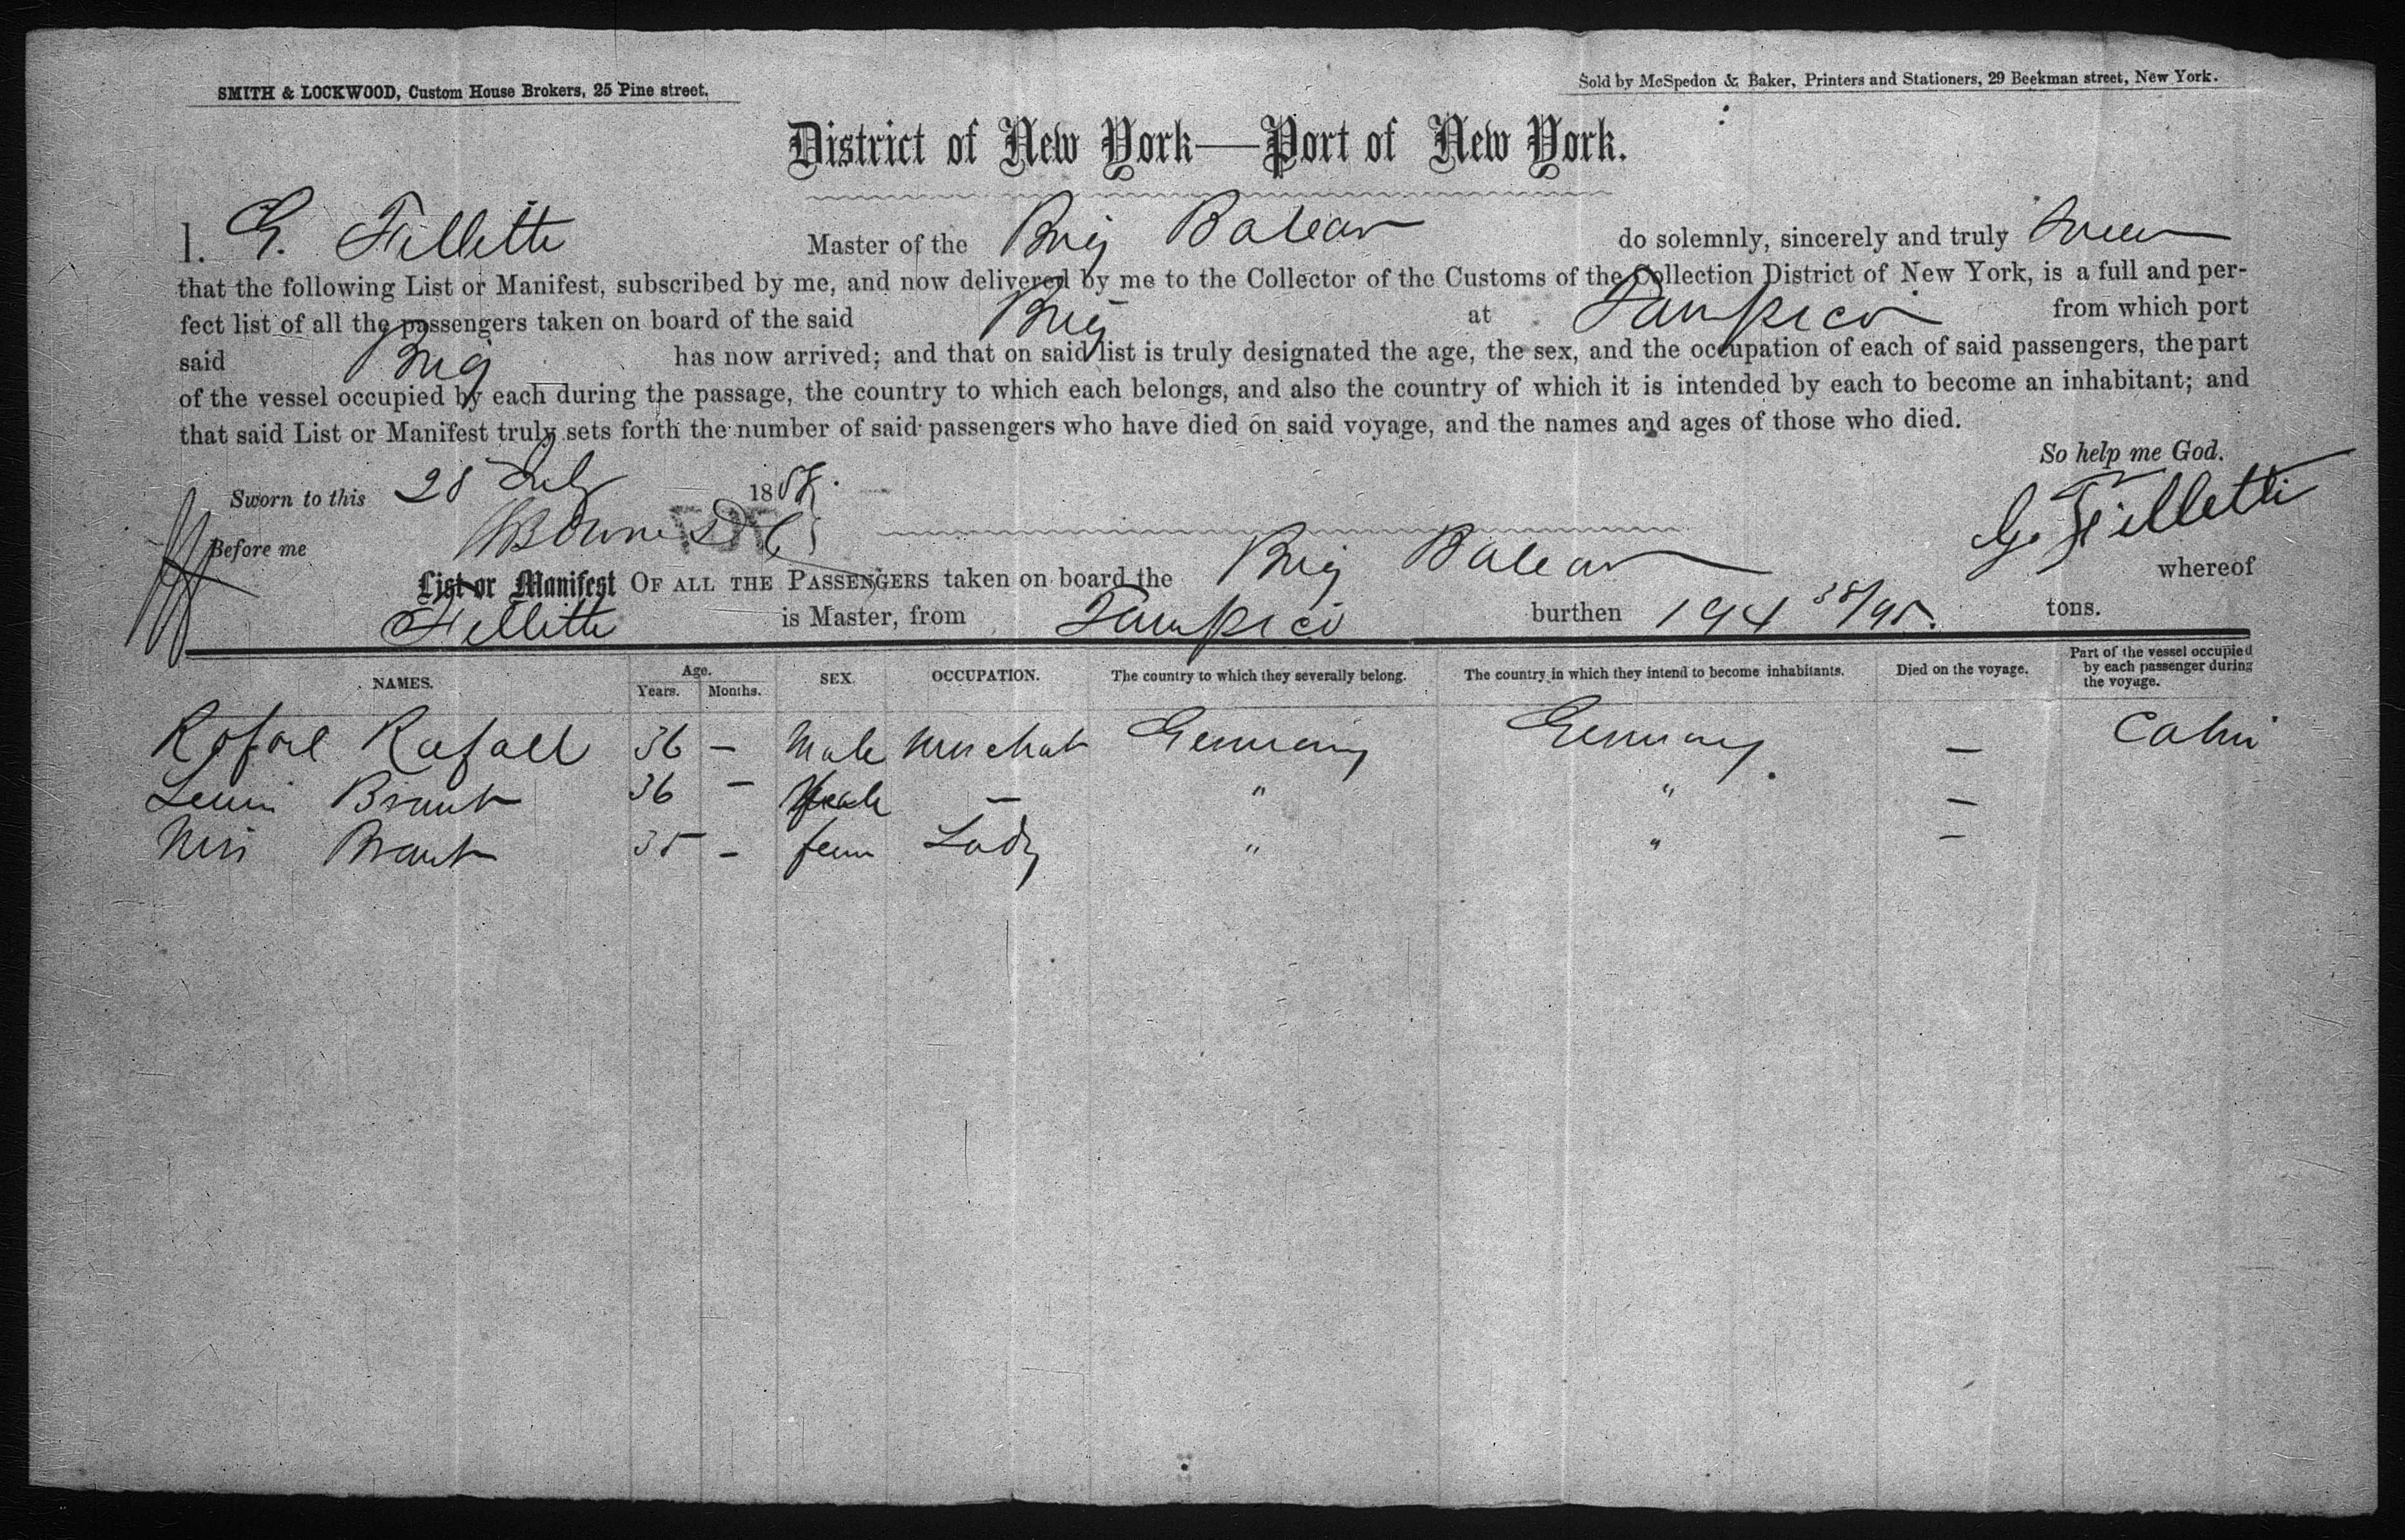 SMITH & LOCKWOOD, Custom House Brokers, 25 Pine street.
Sold by McSpedon & Baker, Printers and Stationers, 29 Beekman street, New York.
District of New York—Port of New York.
I. G. Filletti Master of the Brig Balear do solemnly, sincerely and truly Swear
that the following List or Manifest, subscribed by me, and now delivered by me to the Collector of the Customs of the Collection District of New York, is a full and per-
fect list of all the passengers taken on board of the said Brig at Tampico from which port
said Brig has now arrived; and that on said list is truly designated the age, the sex, and the occupation of each of said passengers, the part
of the vessel occupied by each during the passage, the country to which each belongs, and also the country of which it is intended by each to become an inhabitant; and
that said List or Manifest truly sets forth the number of said passengers who have died on said voyage, and the names and ages of those who died.
So help me God.
Sworn to this 28 July 18
G. Filletti
Before me
List or Manifest OF ALL THE PASSENGERS taken on board the Brig Balear whereof
Filletti is Master, from Tampico burthen 194 38/95. tons.
NAMES. Age. Years. Months. SEX. OCCUPATION. The country to which they severally belong. The country in which they intend to become inhabitants. Died on the voyage. Part of the vessel occupied by each passenger during the voyage.
Rafael Rafael 36 — Male Merchat Germany Germany. — Cabin
Brant 36 — — " " —
Brant 35 — fem Lady " " —